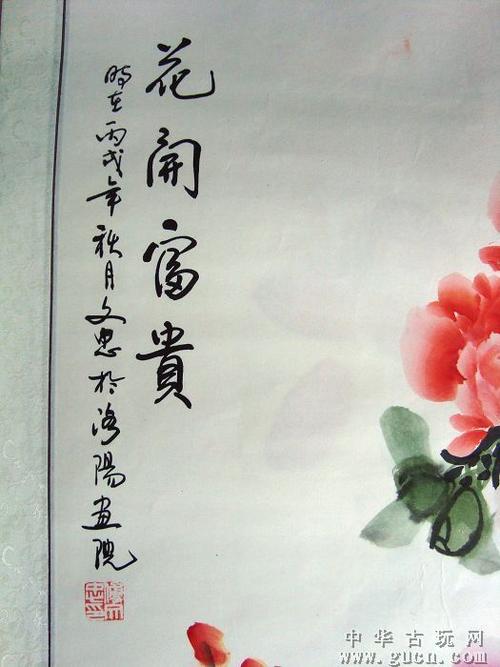 花開富貴
時在丙戌年秋月文忠於洛陽畫院
中华古玩网
www.gucn.com